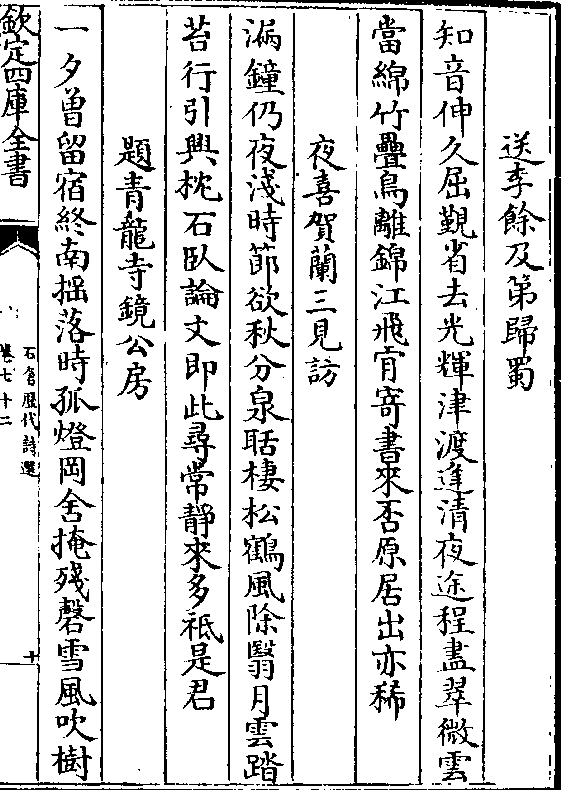 送李餘及第歸蜀
知音伸久屈覲省去光輝津渡逢清夜途程盡翠微雲
當綿竹疊鳥離錦江飛肯寄書來否原居出亦稀
夜喜賀蘭三見訪
漏鐘仍夜淺時節欲秋分泉聒棲松鶴風除翳月雲踏
苔行引興枕石臥論文即此尋常靜來多祗是君
題青龍寺鏡公房
一夕曾留宿終南揺落時孤燈岡舍掩殘磬雪風吹樹
欽定四庫全書
石倉歷代詩選
卷七十二
十